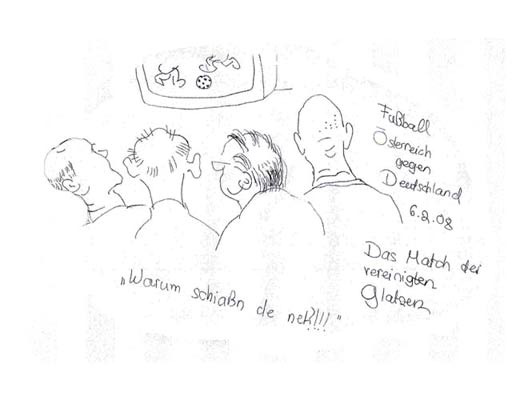 Fußball
Österreich
gegen
Deutschland
6.2.08
Das Match der
vereinigten
Glatzen
„Warum schiaßn de net?!!!"